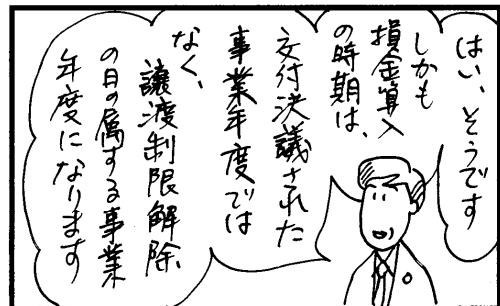 はい、そうです
しかも
損金算入
の時期は、
交付決議された
事業年度では
なく、
譲渡制限解除
の日の属する事業
年度になります